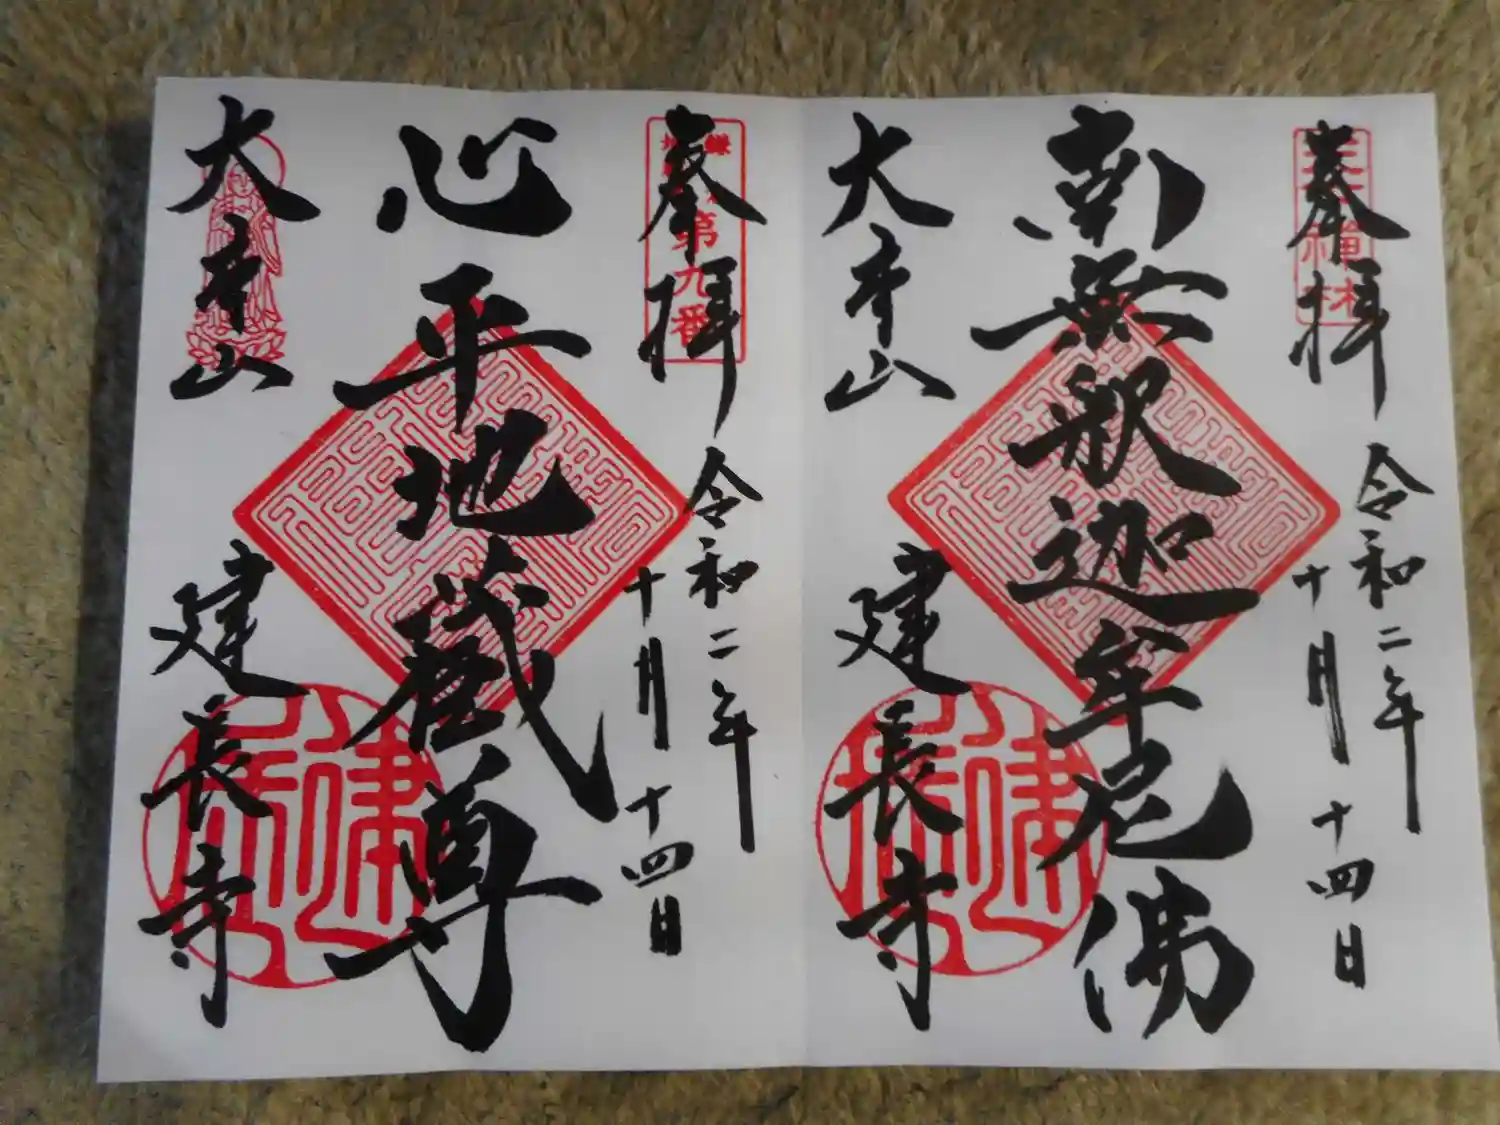 奉拝
令和二年
十月十四日
南無釈迦牟尼佛
大本山
建長寺
奉拝
第九番
令和二年
十月十四日
心平地蔵尊
大本山
建長寺